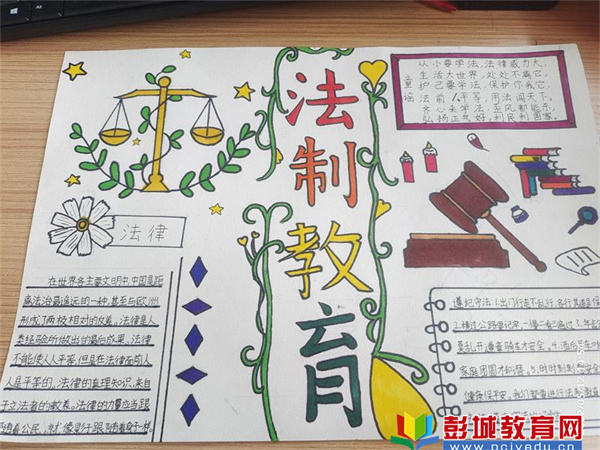 法制教育
童谣
从小要学法,法律威力大,
生活大世界,处处不离它,
护己要学法,保护你我它,
法前人人平等,用法闯天下。
齐心来学法,
弘扬正气好,利民利国家。
法律
在世界各主要文明中,中国是距
离法治最遥远的一种,甚至与欧洲
形成了两极相对的反差。法律是人
类经验所做出的最后成果。法律
不能使人人平等,但是在法律面前人
人是平等的。法律的真理知识,来自
于立法者的教养。法律的力量应当跟
随着公民,就像影子跟随着身子一样。
遵纪守法:1.出门行走不乱行,各行其道是
2.横过公路要记牢,一慢二看三通过 3.年
莫乱开
家庭团圆才
彭城教育网
www.pcjyedu.cn